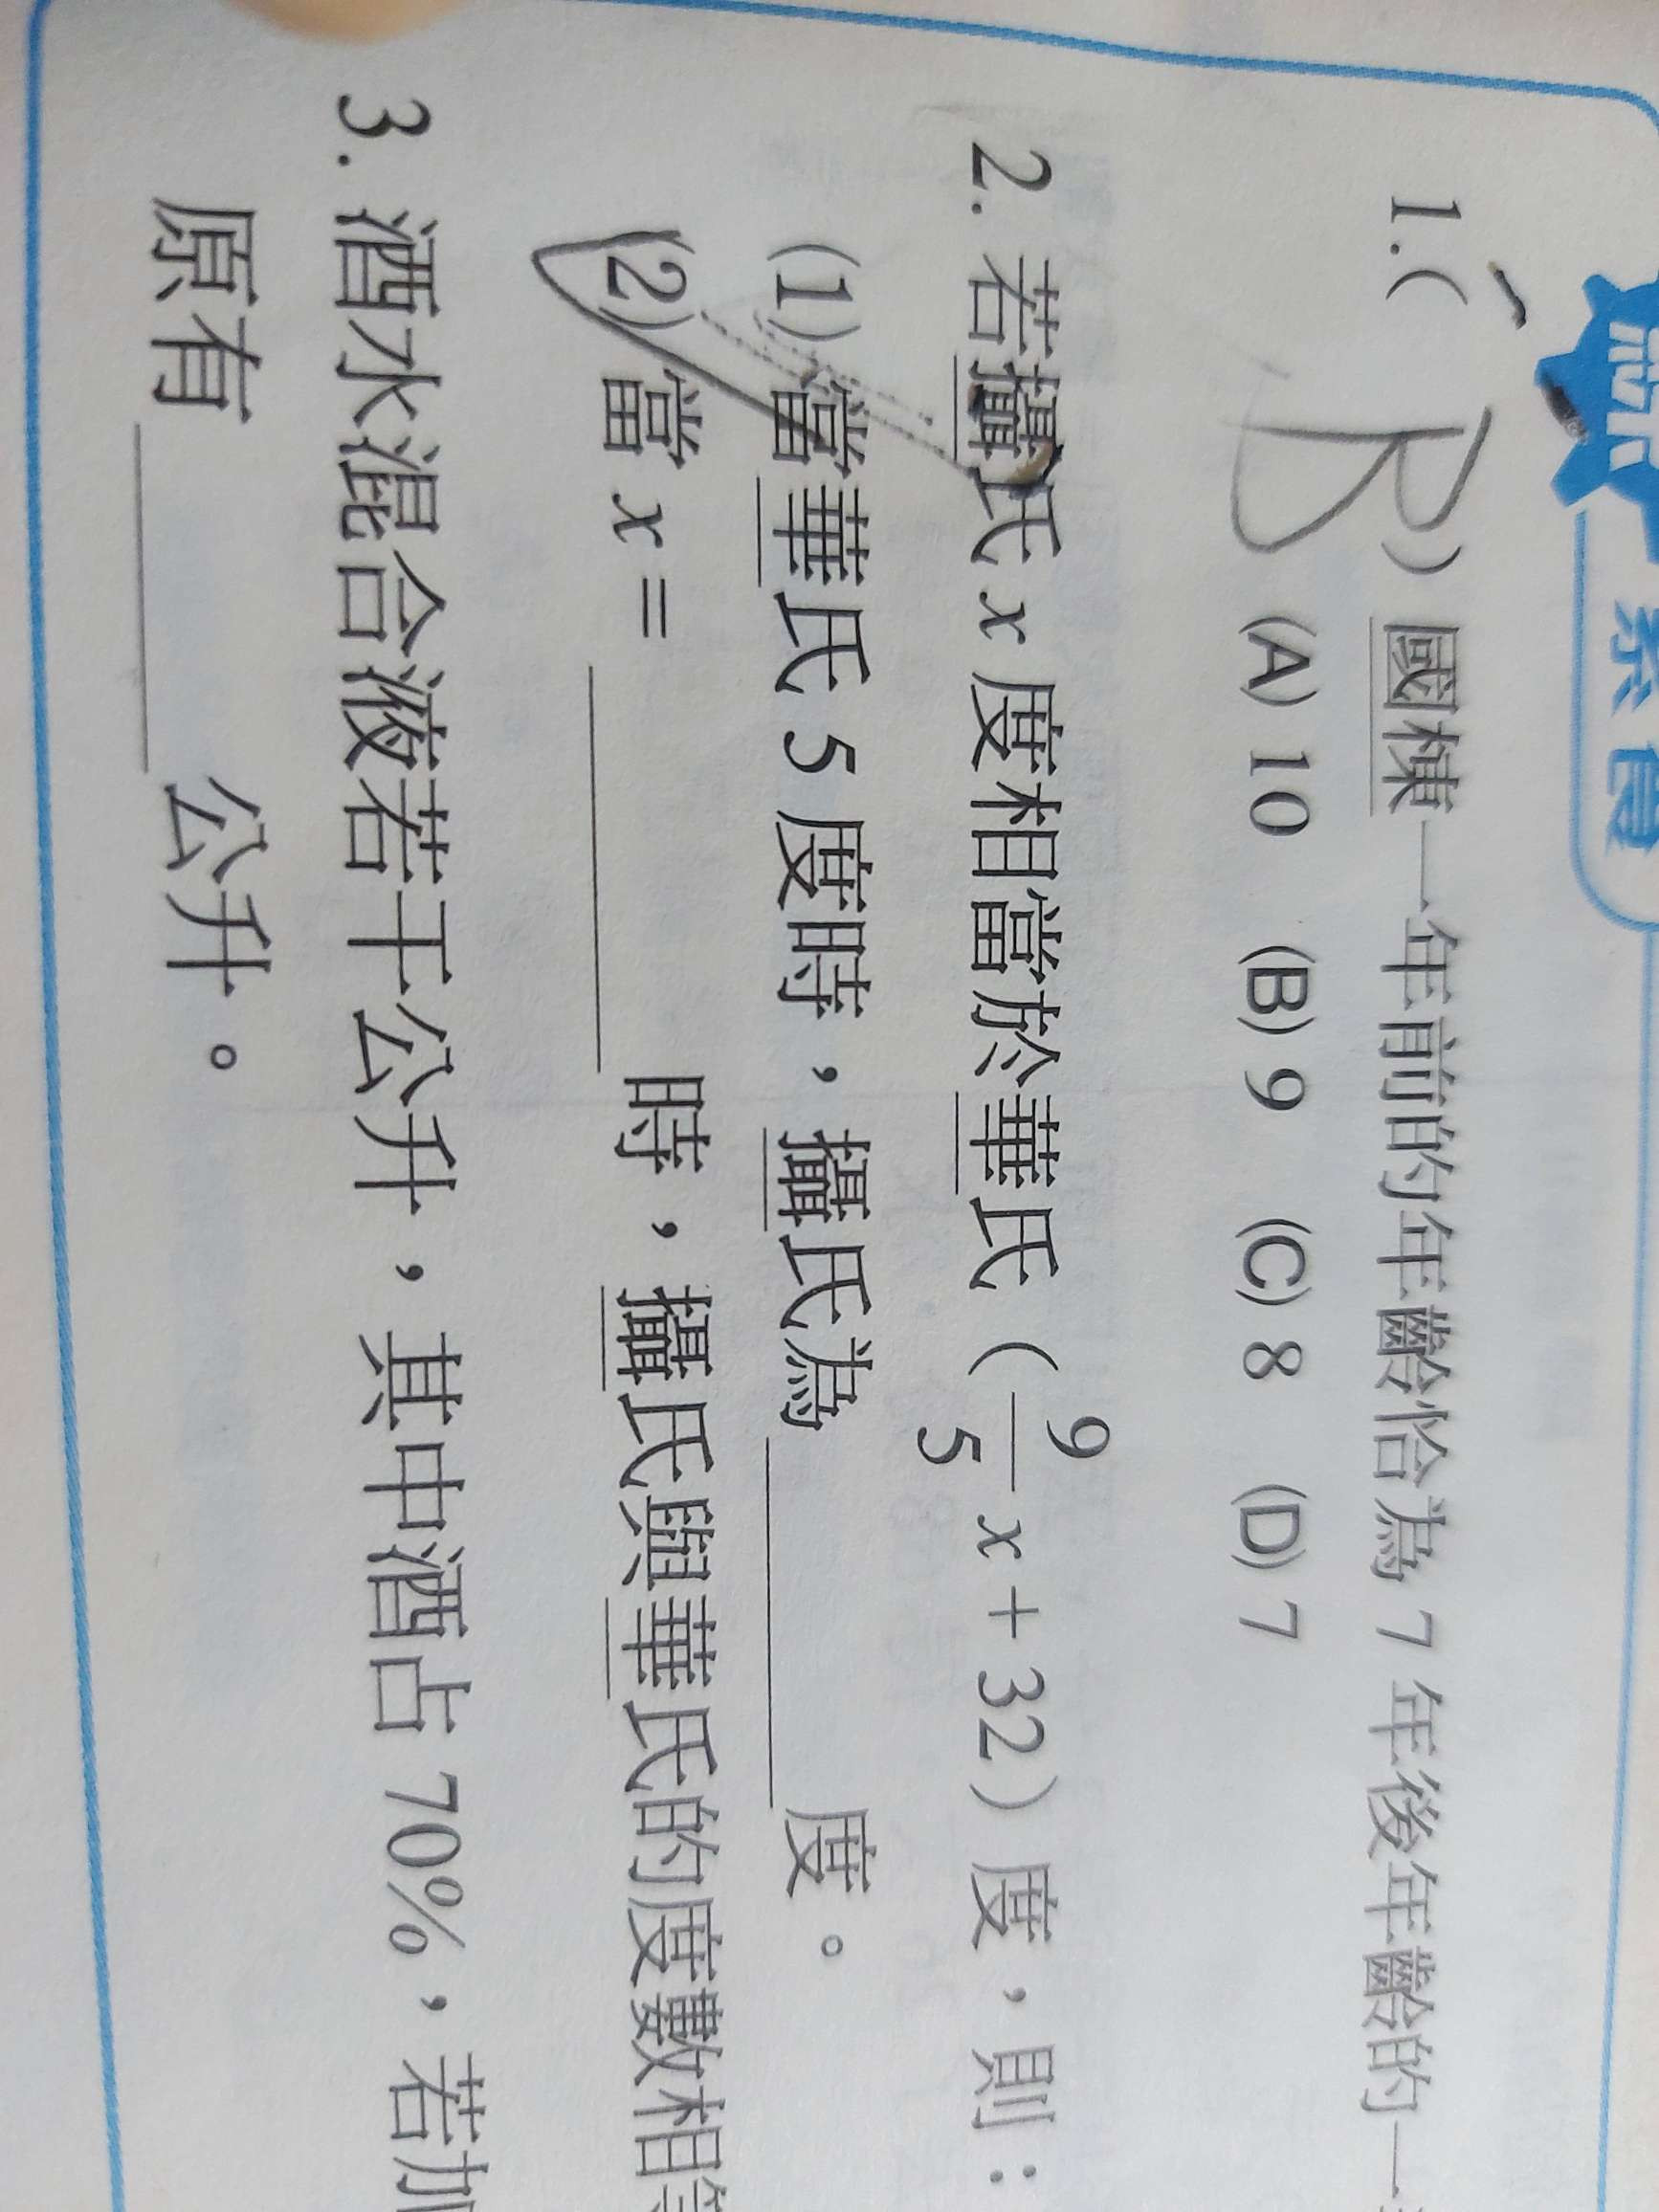 1.( B ) 國棟一年前的年齡恰為 7 年後年齡的一
(A) 10 (B) 9 (C) 8 (D) 7
2. 若攝氏 x 度相當於華氏（9/5 x + 32）度，則：
(1) 當華氏 5 度時，攝氏為______度。
(2) 當 x = ______時，攝氏與華氏的度數相等
3. 酒水混合液若干公升，其中酒占 70%，若加
原有______公升。